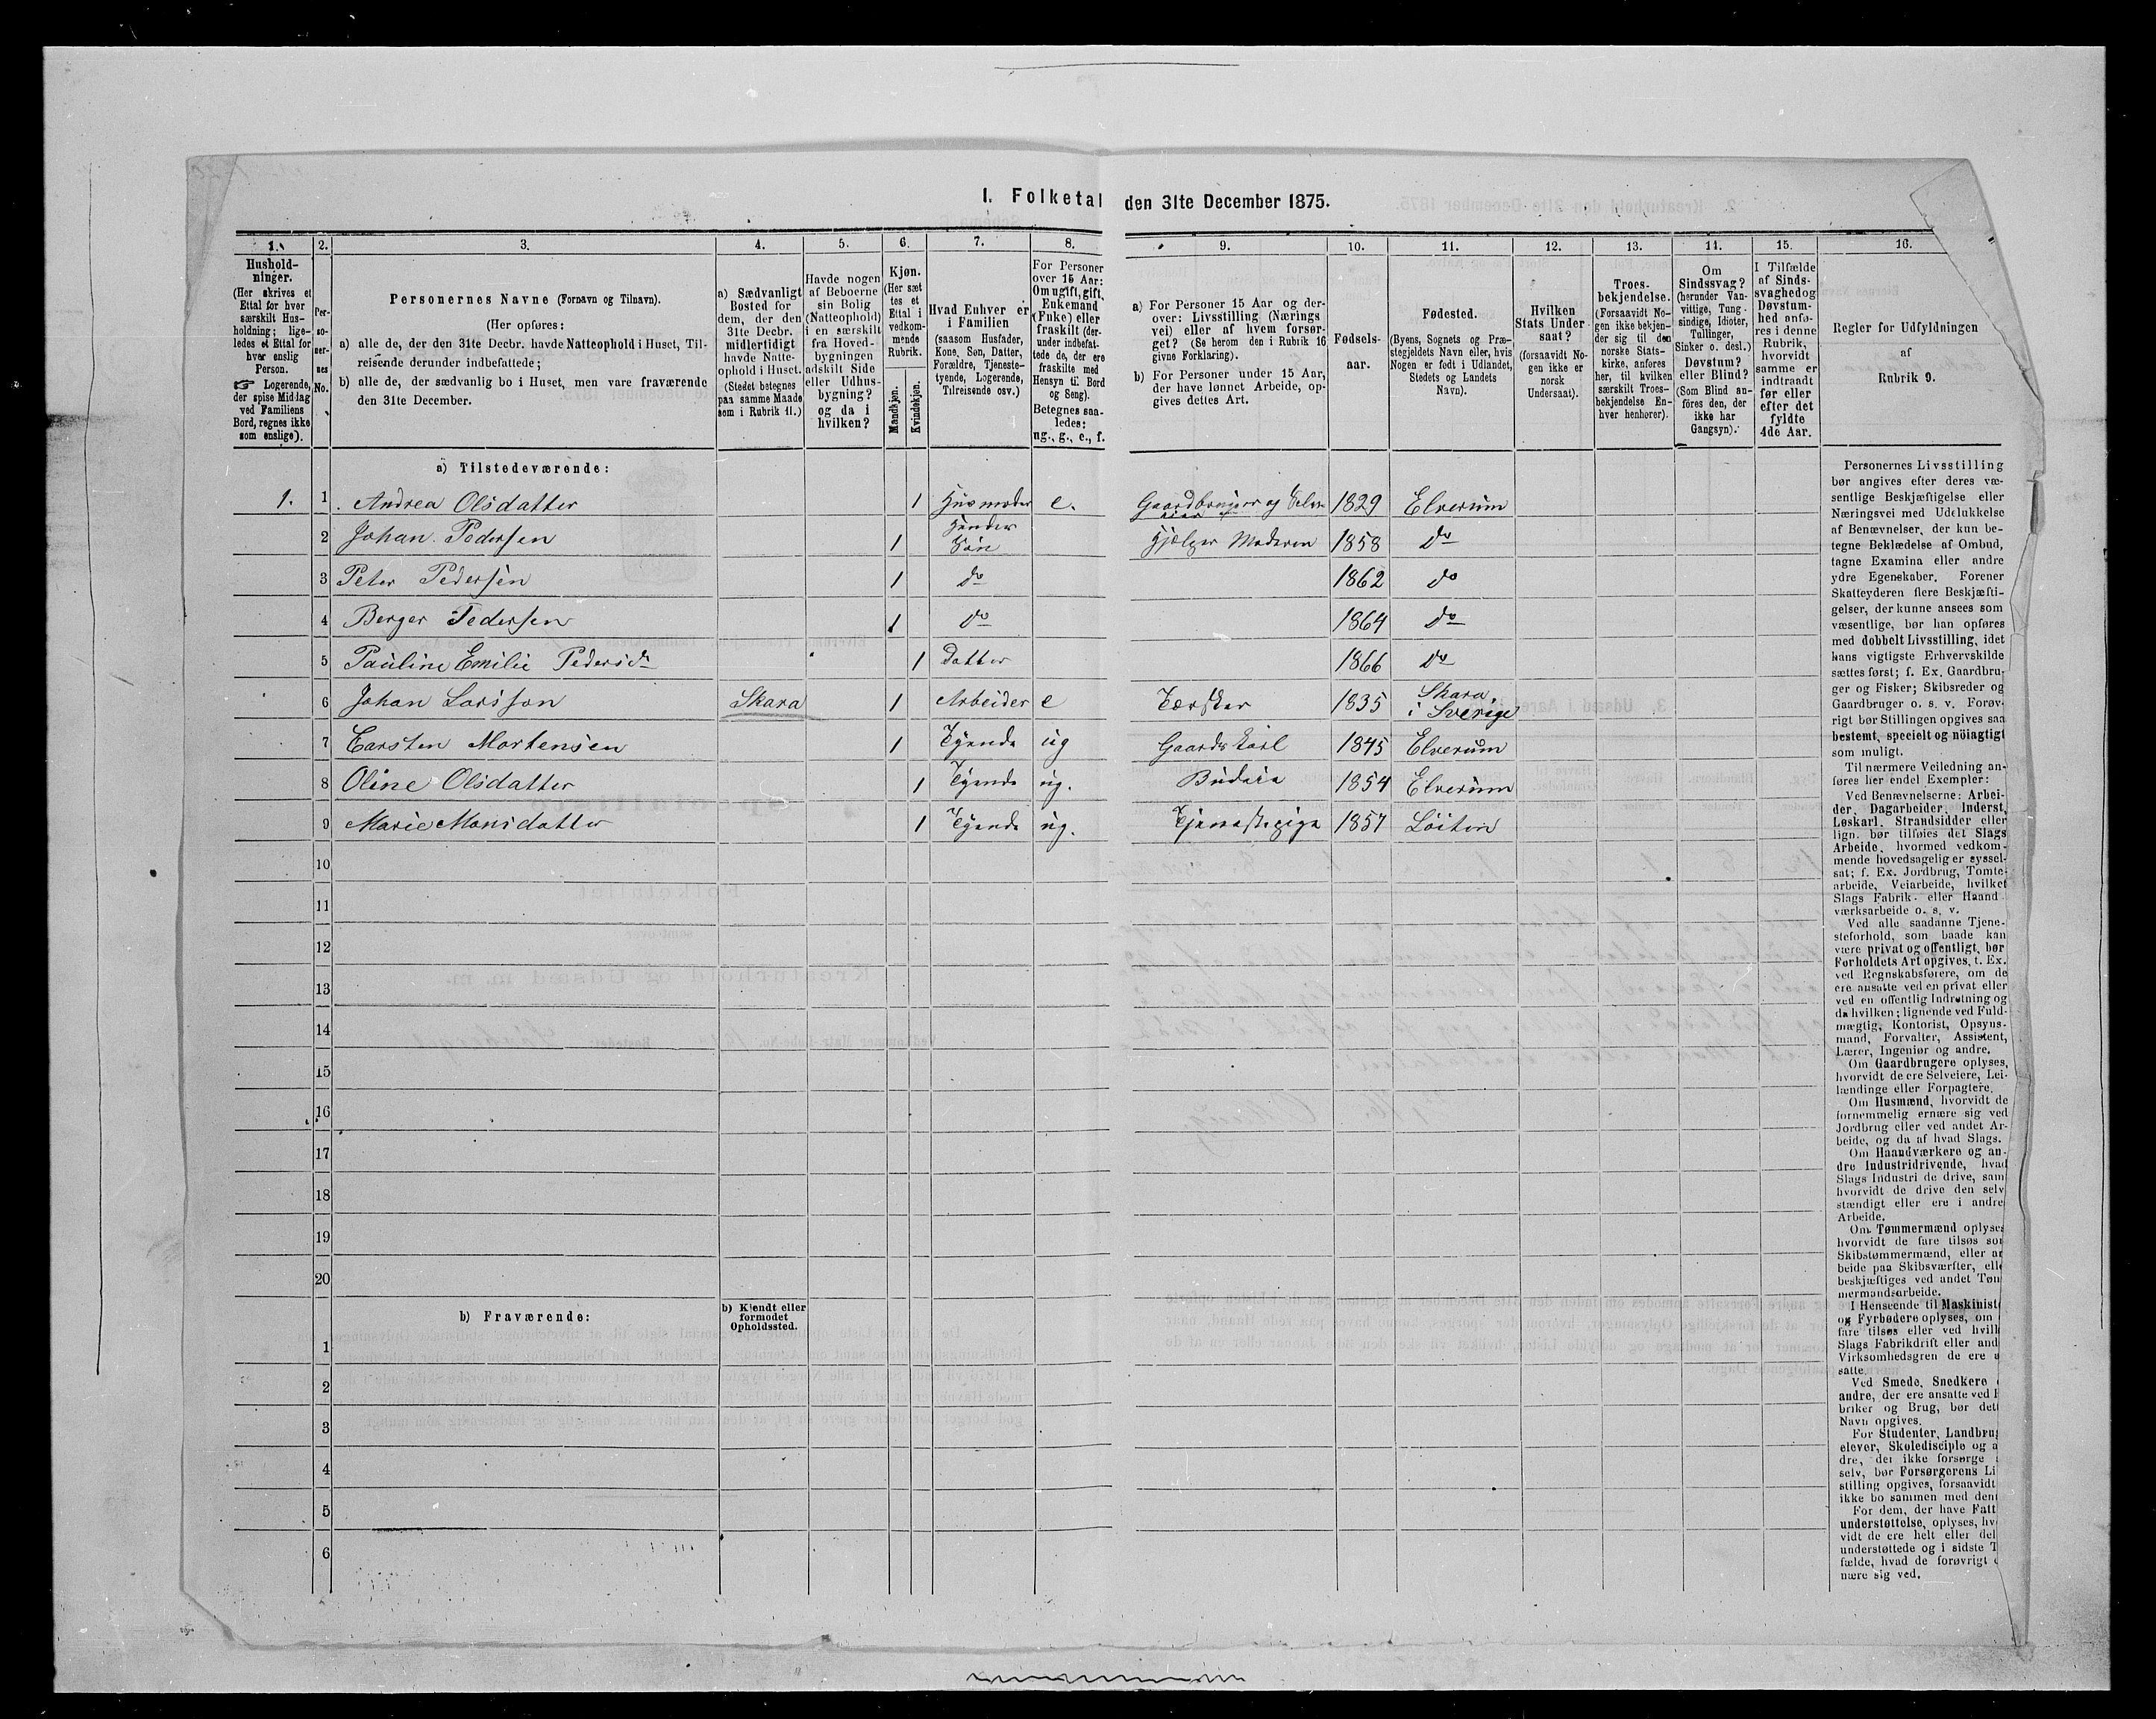 I. Folketal den 31te December 1875.
1. 2. 3. 4. 5. 6. 7. 8. 9. 10. 11. 12. 13. 14. 15. 16.
Hushold-
ninger.
(Her skrives et
Ettal for hver
særskilt Hus-
holdning; lige-
ledes et Ettal for
hver enslig
Person.
☞ Logerende,
der spise Middag
ved Familiens
Bord, regnes ikke
som enslige).
Per-
so-
ner-
nes
No.
Personernes Navne (Fornavn og Tilnavn).
(Her opføres:
a) alle de, der den 31te Decbr. havde Natteophold i Huset, Til-
reisende derunder indbefattede;
b) alle de, der sædvanlig bo i Huset, men vare fraværende
den 31te December.
a) Sædvanligt
Bosted for
dem, der den
31te Decbr.
midlertidigt
havde Natte-
ophold i Huset.
(Stedet betegnes
paa samme Maade
som i Rubrik 11.)
Havde nogen
af Beboerne
sin Bolig
(Natteophold)
i en særskilt
fra Hoved-
bygningen
adskilt Side
eller Udhus-
bygning?
og da i
hvilken?
Kjøn.
(Her sæt
tes et
Ettal i
vedkom-
mende
Rubrik.
Mandkjøn.
Kvindekjøn.
Hvad Enhver er
i Familien
(saasom Husfader,
Kone, Søn, Datter,
Forældre, Tjeneste-
tyende, Logerende,
Tilreisende osv.)
For Personer
over 15 Aar:
Om ugift, gift,
Enkemand
(Enke) eller
fraskilt (der-
under indbefat-
tede de, der ere
fraskilte med
Hensyn til Bord
og Seng).
Betegnes saa-
ledes:
ug., g., e., f.
a) For Personer 15 Aar og der-
over: Livsstilling (Nærings
vei) eller af hvem forsør-
get? (Se herom den i Rubrik 16
givne Forklaring).
b) For Personer under 15 Aar,
der have lønnet Arbeide, op-
gives dettes Art.
Fødsels-
aar.
Fødested.
(Byens, Sognets og Præ-
stegjeldets Navn eller, hvis
Nogen er født i Udlandet,
Stedets og Landets
Navn).
Hvilken
Stats Under-
saat?
(forsaavidt No-
gen ikke er
norsk
Undersaat).
Troes-
bekjendelse.
(Forsaavidt No-
gen ikke bekjen-
der sig til den
norske Stats-
kirke, anføres
her, til hvilken
særskilt Troes-
bekjendelse En-
hver henhører).
Om
Sindssvag?
(herunder Van-
vittige, Tung-
sindige, Idioter,
Tullinger,
Sinker o. desl.)
Døvstum?
eller Blind?
(Som Blind an-
føres den, der
ikke har
Gangsyn).
I Tilfælde
af Sinds-
svaghed og
Døvstum-
hed anfø-
res i denne
Rubrik,
hvorvidt
samme er
indtraadt
før eller
efter det
fyldte
4de Aar.
Regler for Udfyldningen
af
Rubrik 9.
a) Tilstedeværende:
1. 1 Andrea Olsdatter 1 Husmoder e. Gaardbruger og Selv- 1829 Elverum
2 Johan Pedersen 1 Hendes Søn Hjælper Moderen 1858 do
3 Peter Pedersen 1 do 1862 do
4 Berger Pedersen 1 do 1864 do
5 Pauline Emilie Pedersdr 1 Datter 1866 do
6 Johan Larsson Skara 1 Arbeider e Tærsker 1835 Skara i Sverige
7 Carsten Mortensen 1 Tyende ug Gaardskarl 1845 Elverum
8 Oline Olsdatter 1 Tyende ug. Budeie 1854 Elverum
9 Marie Monsdatter 1 Tyende ug. Tjenestepige 1857 Löiten
10
11
12
13
14
15
16
17
18
19
20
b) Fraværende:
b) Kjendt eller
formodet
Opholdssted.
1
2
3
4
5
6
Personernes Livsstilling
bør angives efter deres væ-
sentlige Beskjæftigelse eller
Næringsvei med Udelukkelse
af Benævnelser, der kun be-
tegne Beklædelse af Ombud,
tagne Examina eller andre
ydre Egenskaber. Forener
Skatteyderen flere Beskjæfti-
gelser, der kunne ansees som
væsentlige, bør han opføres
med dobbelt Livsstilling, idet
hans vigtigste Erhvervskilde
sættes først; f. Ex. Gaardbru-
ger og Fisker; Skibsreder og
Gaardbruger o. s. v. Forøv-
rigt bør Stillingen opgives saa
bestemt, specielt og nöiagtigt
som muligt.
Til nærmere Veiledning an-
føres her endel Exempler:
Ved Benævnelserne: Arbei-
der, Dagarbeider, Inderst,
Løskarl, Strandsidder eller
lign. bør tilføies det Slags
Arbeide, hvormed vedkom-
mende hovedsagelig er syssel-
sat; f. Ex. Jordbrug, Tomte-
arbeide, Veiarbeide, hvilket
Slags Fabrik- eller Haand-
værksarbeide o. s. v.
Ved alle saadanne Tjene-
steforhold, som baade kan
være privat og offentligt, bør
Forholdets Art opgives, t. Ex.
ved Regnskabsførere, om de
ere ansatte ved en privat eller
ved en offentlig Indretning og
da hvilken; lignende ved Fuld-
mægtig, Kontorist, Opsyns-
mand, Forvalter, Assistent,
Lærer, Ingeniør og andre.
Om Gaardbrugere oplyses,
hvorvidt de ere Selveiere, Lei-
lændinge eller Forpagtere.
Om Husmænd, hvorvidt de
fornemmelig ernære sig ved
Jordbrug eller ved andet Ar-
beide, og da af hvad Slags.
Om Haandværkere og an-
dre Industridrivende, hvad
Slags Industri de drive, sam
hvorvidt de drive den selv
stændigt eller ere i andre
Arbeide.
Om Tømmermænd oplyses
hvorvidt de fare tilsøs som
Skibstømmermænd, eller ar
beide paa Skibsværfter, elle
beskjæftiges ved andet Tøm
mermandsarbeide.
I Henseende til Maskinist
og Fyrbødere oplyses, om
fare tilsøs eller ved hvilk
Slags Fabrikdrift eller and
Virksomhedsgren de ere a
satte.
Ved Smede, Snedkere
andre, der ere ansatte ved F
briker og Brug, bør dett
Navn opgives.
For Studenter, Landbrug
elever, Skoledisciple og a
dre, der ikke forsørge
selv, bør Forsørgerens Li
stilling opgives, forsaavidt
ikke bo sammen med den
For dem, der have Fatt
understøttelse, oplyses, hv
vidt de ere helt eller del
understøttede og i sidste T
fælde, hvad de forøvrigt
nære sig ved.